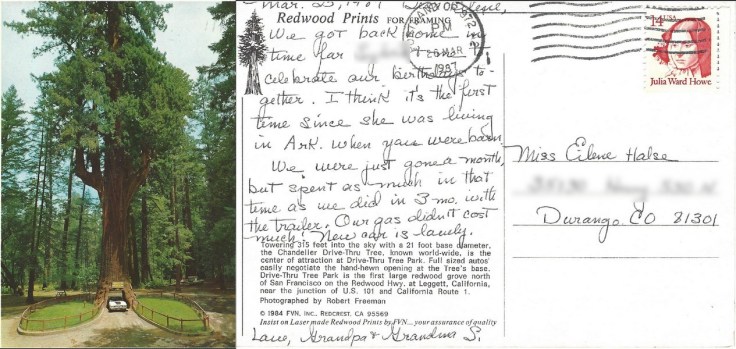 Mar. 23, 1987 Dear Eilene,
Redwood Prints FOR FRAMING
We got back home in
time for
celebrate our birthdays to-
gether. I think it's the first
time since she was living
in Ark. when you were born.
We were just gone a month,
but spent as much in that
time as we did in 3 mo. with
the trailer. Our gas didn't cost
much! New car is lovely.
Towering 315 feet into the sky with a 21 foot base diameter,
the Chandelier Drive-Thru Tree, known world-wide, is the
center of attraction at Drive-Thru Tree Park. Full sized autos'
easily negotiate the hand-hewn opening at the Tree's base.
Drive-Thru Tree Park is the first large redwood grove north
of San Francisco on the Redwood Hwy. at Leggett, California,
near the junction of U.S. 101 and California Route 1.
Photographed by Robert Freeman
© 1984 FVN, INC., REDCREST, CA 95569
Insist on Laser made Redwood Prints by FVN... your assurance of quality
Love, Grandpa & Grandma S.
PM
MAR
1987
14¢ USA
Julia Ward Howe
Miss Eilene Halse
Durango, CO 81301